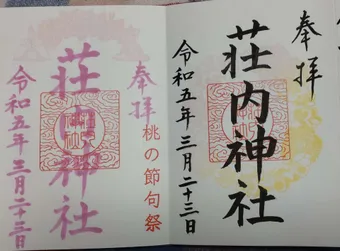 奉拝
荘内神社
令和五年三月二十三日
奉拝
桃の節句祭
荘内神社
令和五年三月二十三日